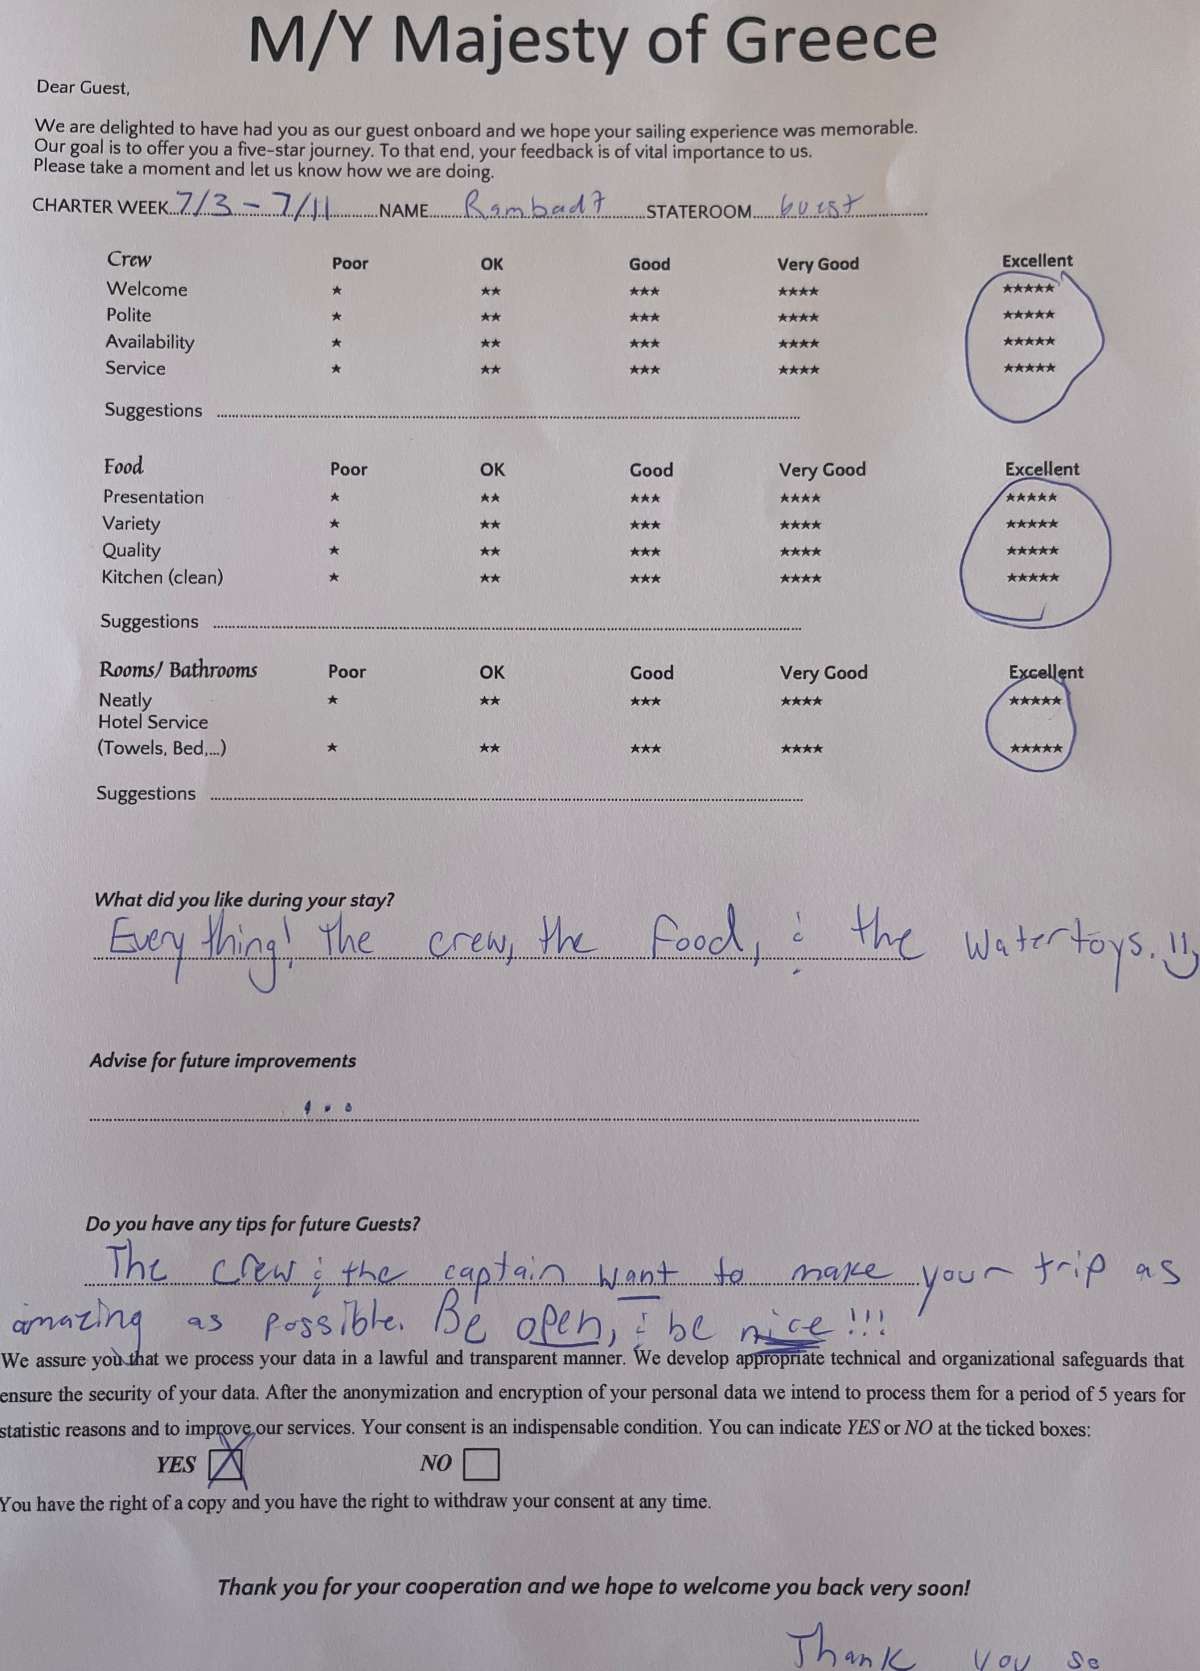 M/Y Majesty of Greece
Dear Guest,
We are delighted to have had you as our guest onboard and we hope your sailing experience was memorable.
Our goal is to offer you a five-star journey. To that end, your feedback is of vital importance to us.
Please take a moment and let us know how we are doing.
CHARTER WEEK 7/3 - 7/11 NAME Rambadt STATEROOM Guest
Crew Poor OK Good Very Good Excellent
Welcome ★ ★★ ★★★ ★★★★ ★★★★★
Polite ★ ★★ ★★★ ★★★★ ★★★★★
Availability ★ ★★ ★★★ ★★★★ ★★★★★
Service ★ ★★ ★★★ ★★★★ ★★★★★
Suggestions
Food Poor OK Good Very Good Excellent
Presentation ★ ★★ ★★★ ★★★★ ★★★★★
Variety ★ ★★ ★★★ ★★★★ ★★★★★
Quality ★ ★★ ★★★ ★★★★ ★★★★★
Kitchen (clean) ★ ★★ ★★★ ★★★★ ★★★★★
Suggestions
Rooms/ Bathrooms Poor OK Good Very Good Excellent
Neatly ★ ★★ ★★★ ★★★★ ★★★★★
Hotel Service
(Towels, Bed,...) ★ ★★ ★★★ ★★★★ ★★★★★
Suggestions
What did you like during your stay?
Everything! The crew, the food, & the watertoys. :)
Advise for future improvements
...
Do you have any tips for future Guests?
The crew & the captain want to make your trip as
amazing as possible. Be open, & be nice!!!
We assure you that we process your data in a lawful and transparent manner. We develop appropriate technical and organizational safeguards that
ensure the security of your data. After the anonymization and encryption of your personal data we intend to process them for a period of 5 years for
statistic reasons and to improve our services. Your consent is an indispensable condition. You can indicate YES or NO at the ticked boxes:
YES NO
You have the right of a copy and you have the right to withdraw your consent at any time.
Thank you for your cooperation and we hope to welcome you back very soon!
Thank you so